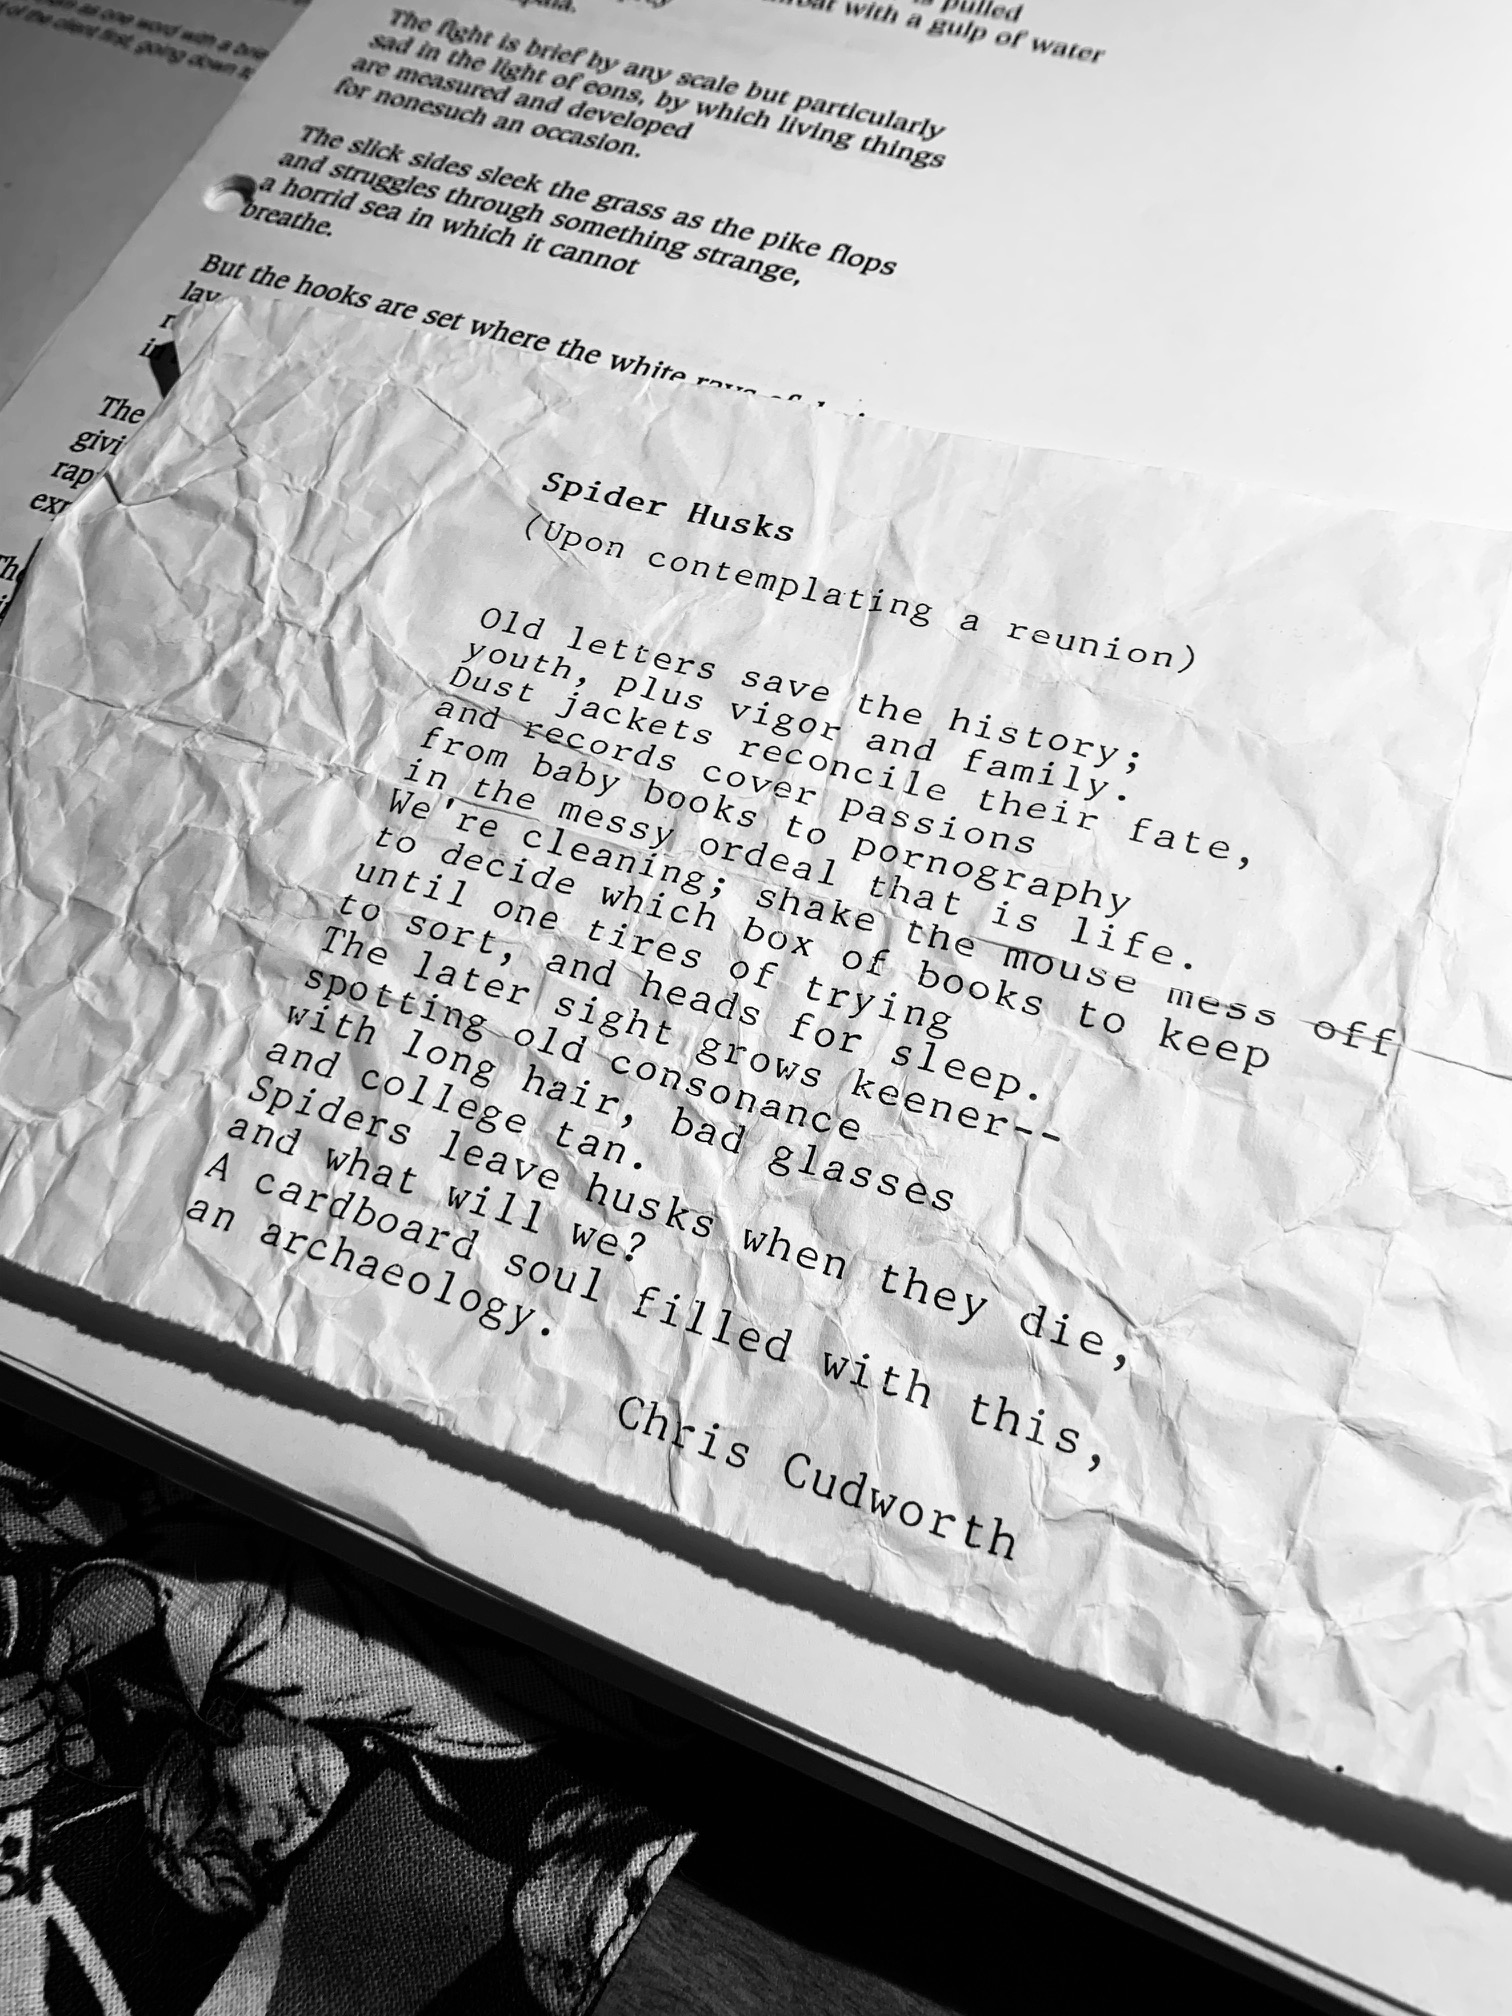 as one word with a
of the client first, going down
pulled
with a gulp of water
The fight is brief by any scale but particularly
sad in the light of eons, by which living things
are measured and developed
for nonesuch an occasion.
The slick sides sleek the grass as the pike flops
and struggles through something strange,
a horrid sea in which it cannot
breathe.
But the hooks are set where the white rays of
The
Spider Husks
(Upon contemplating a reunion)
Old letters save the history;
youth, plus vigor and family.
Dust jackets reconcile their fate,
and records cover passions
from baby books to pornography
in the messy ordeal that is life.
We're cleaning; shake the mouse mess off
to decide which box of books to keep
until one tires of trying
to sort, and heads for sleep.
The later sight grows keener--
spotting old consonance
with long hair, bad glasses
and college tan.
Spiders leave husks when they die,
and what will we?
A cardboard soul filled with this,
an archaeology.
Chris Cudworth